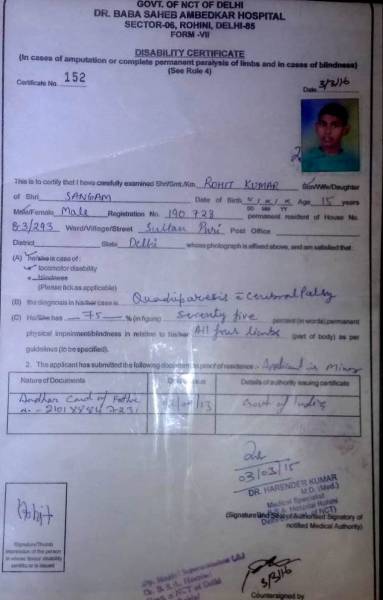 GOVT. OF NCT OF DELHI
DR. BABA SAHEB AMBEDKAR HOSPITAL
SECTOR-06, ROHINI, DELHI-85
FORM -VII
DISABILITY CERTIFICATE
(In cases of amputation or complete permanent paralysis of limbs and in cases of blindness)
(See Rule 4)
Certificate No. 152
Date 3/3/16
This is to certify that I have carefully examined Shri/Smt./Km. ROHIT KUMAR Son/Wife/Daughter
of Shri SANGAM Date of Birth Age 15 years
DD MM YY
Male/Female Male Registration No. 190728 permanent resident of House No.
B-3/293 Ward/Village/Street Sultan Puri Post Office
District State Delhi whose photograph is affixed above, and am satisfied that:
(A) he/she is case of:
locomotor disability
blindness
(Please tick as applicable)
(B) the diagnosis in his/her case is Quadriparesis Cerebral Palsy
(C) He/She has 75 % (in figure) seventy five percent (in words) permanent
physical impairment/blindness in relation to his/her All four limbs (part of body) as per
guidelines (to be specified).
2. The applicant has submitted the following document as proof of residence :- Applicant is Minor
Nature of Documents Details of authority issuing certificate
Aadhar Card of Father Govt of India
03/03/15
DR. HARENDER KUMAR
M.D. (Med.)
Medical Specialist
(Signature and Seal of Authorised Signatory of
notified Medical Authority)
Rohit
Signature/Thumb
impression of the person
in whose favour disability
certificate is issued
3/3/16
Countersigned by